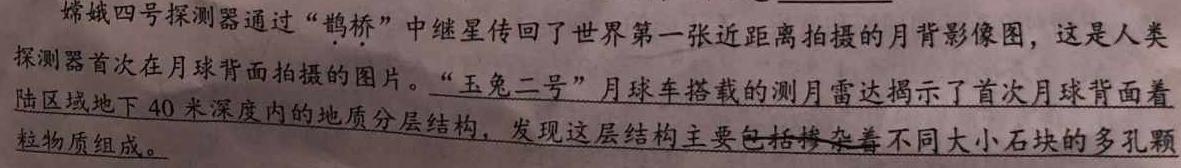 嫦娥四号探测器通过“鹊桥”中继星传回了世界第一张近距离拍摄的月背影像图，这是人类
探测器首次在月球背面拍摄的图片。“玉兔二号”月球车搭载的测月雷达揭示了首次月球背面着
陆区域地下40米深度内的地质分层结构，发现这层结构主要包括掺杂着不同大小石块的多孔颗
粒物质组成。